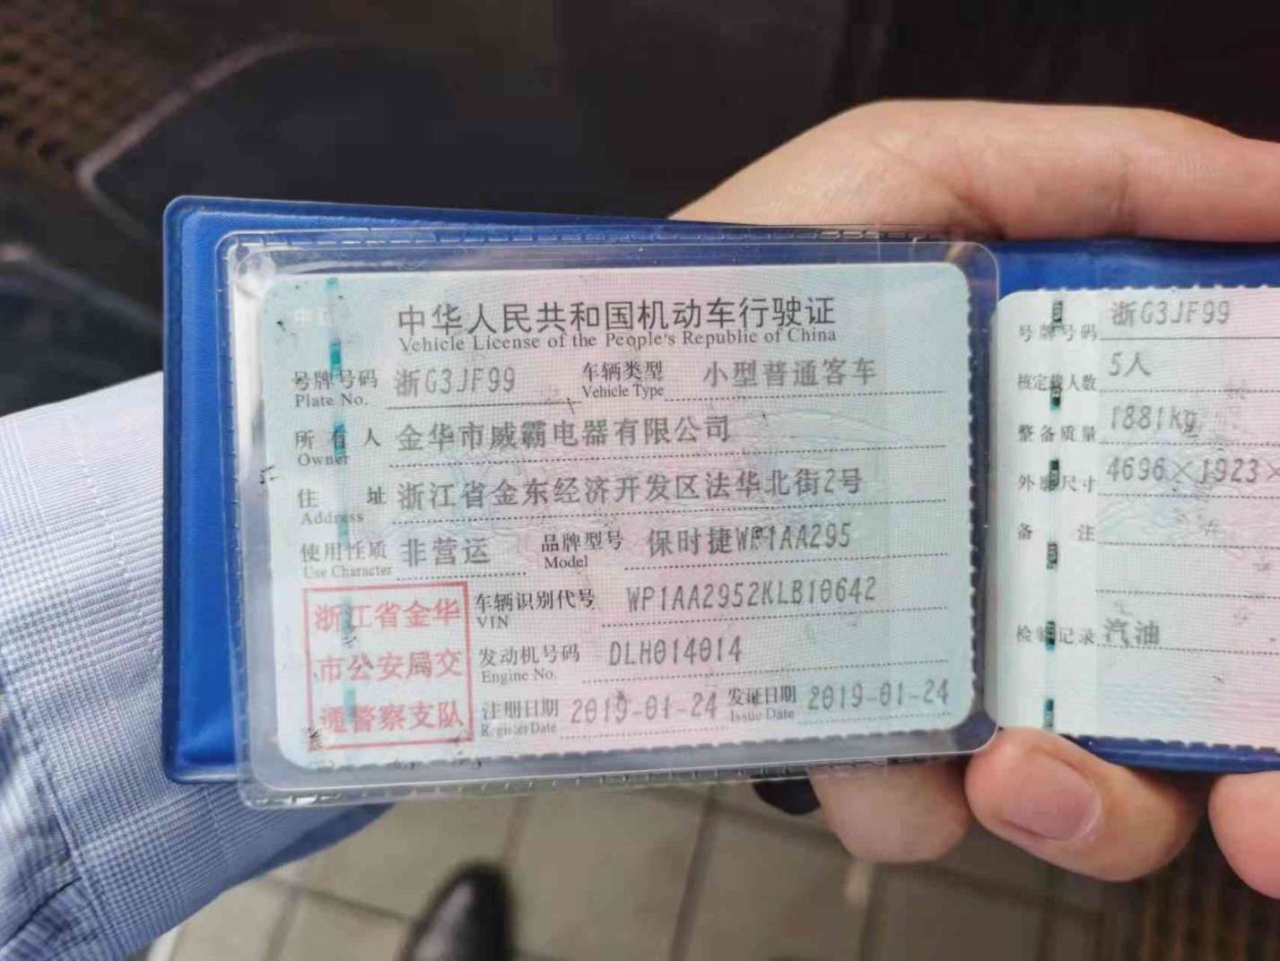 中华人民共和国机动车行驶证
Vehicle License of the People's Republic of China
号牌号码 浙G3JF99 车辆类型 小型普通客车
Plate No. Vehicle Type
所有人 金华市威霸电器有限公司
Owner
住址 浙江省金东经济开发区法华北街2号
Address
使用性质 非营运 品牌型号 保时捷WP1AA295
Use Character Model
浙江省金华
市公安局交
通警察支队
车辆识别代号 WP1AA2952KLB10642
VIN
发动机号码 DLH014014
Engine No.
注册日期 2019-01-24 发证日期 2019-01-24
Register Date Issue Date
号牌号码 浙G3JF99
核定载人数 5人
整备质量 1881kg
外廓尺寸 4696×1923×
备注
检验记录 汽油